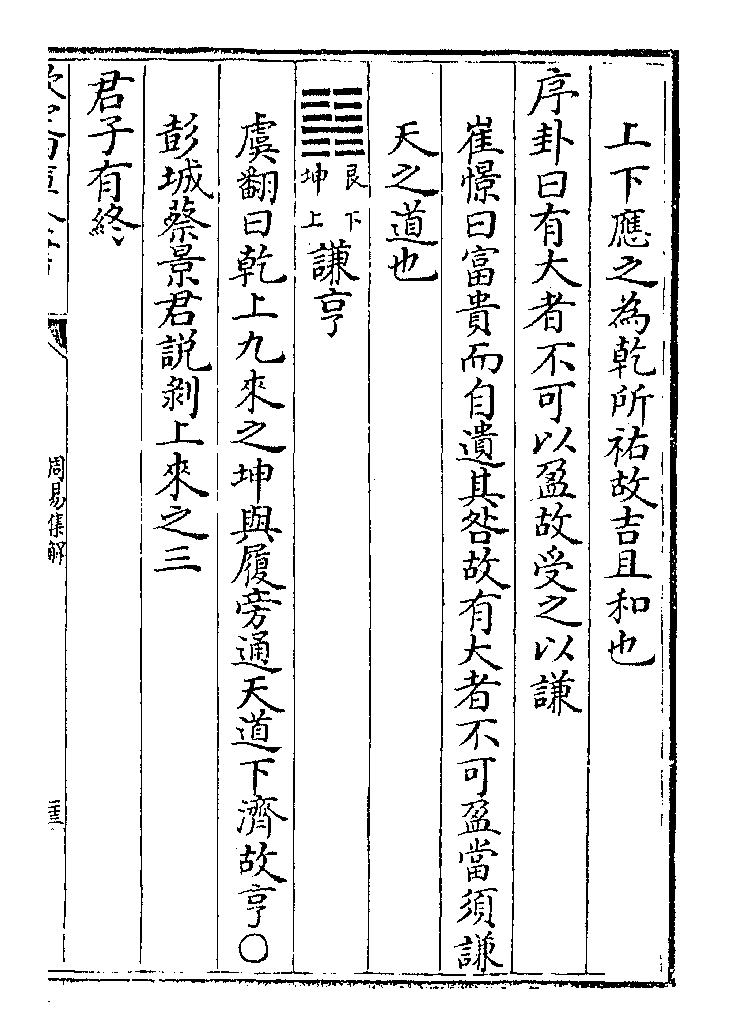 上下應之為乾所祐故吉且和也
序卦曰有大者不可以盈故受之以謙
崔憬曰富貴而自遺其咎故有大者不可盈當須謙
天之道也
艮下
坤上
謙亨
虞翻曰乾上九來之坤與履旁通天道下濟故亨○
彭城蔡景君說剝上來之三
君子有終
周易集解